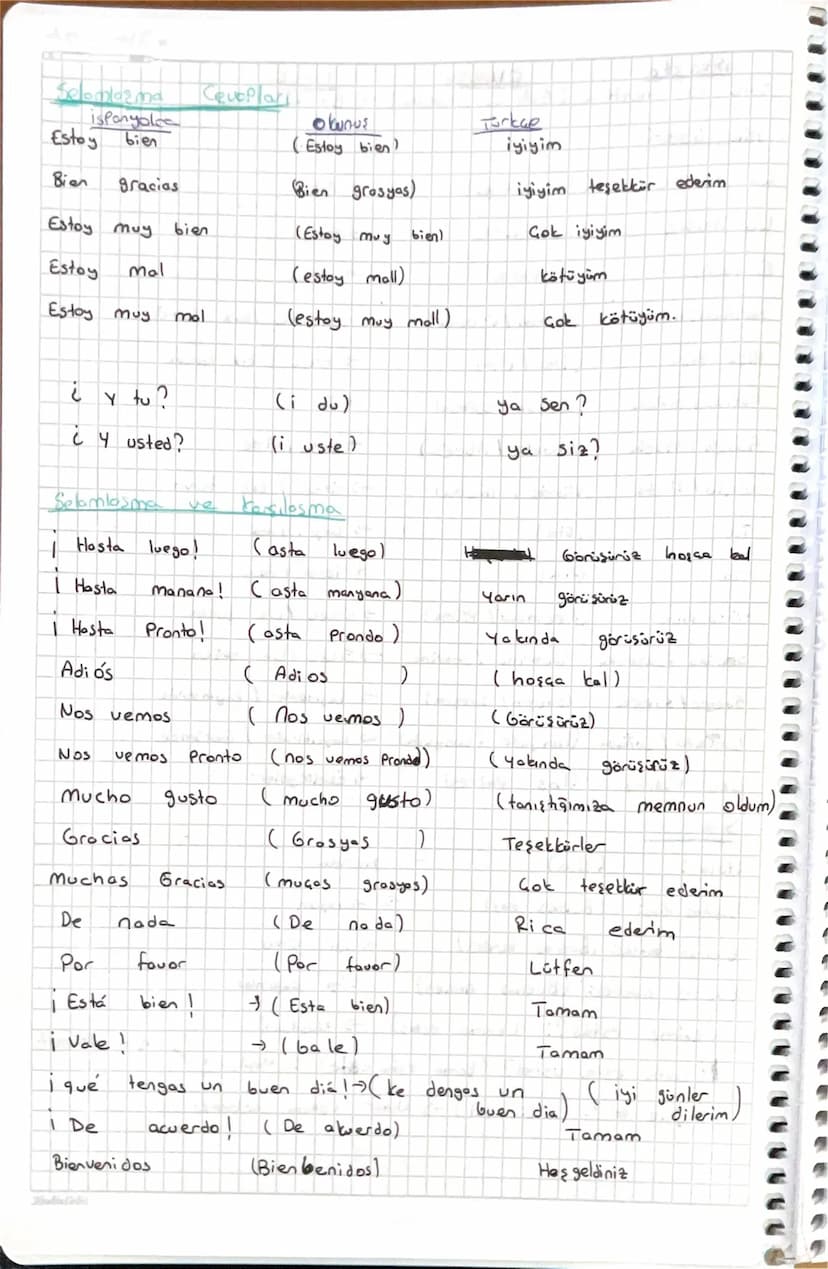 Selamlaşma Cevapları
ispanyolca Okunuş Türkçe
Estoy bien (Estoy bien) iyiyim
Bien gracias (Bien grasyas) iyiyim teşekkür ederim
Estoy muy bien (Estoy muy bien) Çok iyiyim
Estoy mal (estoy mall) kötüyüm
Estoy muy mal (estoy muy mall) Çok kötüyüm.
¿ y tu? (i du) ya sen?
¿ y usted? (i uste) ya siz?
Selamlaşma ve karşılaşma
¡ Hasta luego! (asta luego) Görüşürüz hoşça kal
¡ Hasta manana! (asta manyana) Yarın görüşürüz
¡ Hasta Pronto! (asta Prondo) Yakında görüşürüz
Adiós (Adios) (hoşça kal)
Nos vemos (Nos vemos) (Görüşürüz)
Nos vemos Pronto (nos vemos Prondo) (yakında görüşürüz)
Mucho gusto (mucho gusto) (tanıştığımıza memnun oldum)
Gracias (Grasyas) Teşekkürler
Muchas Gracias (muças grasyas) Çok teşekkür ederim
De nada (De nada) Rica ederim
Por favor (Por favor) Lütfen
¡ Está bien! → (Esta bien) Tamam
¡ Vale! → (bale) Tamam
¡ qué tengas un buen diá! → (ke dengas un buen dia) (iyi günler dilerim)
¡ De acuerdo! (De akuerdo) Tamam
Bienvenidos (Bienbenidos) Hoş geldiniz